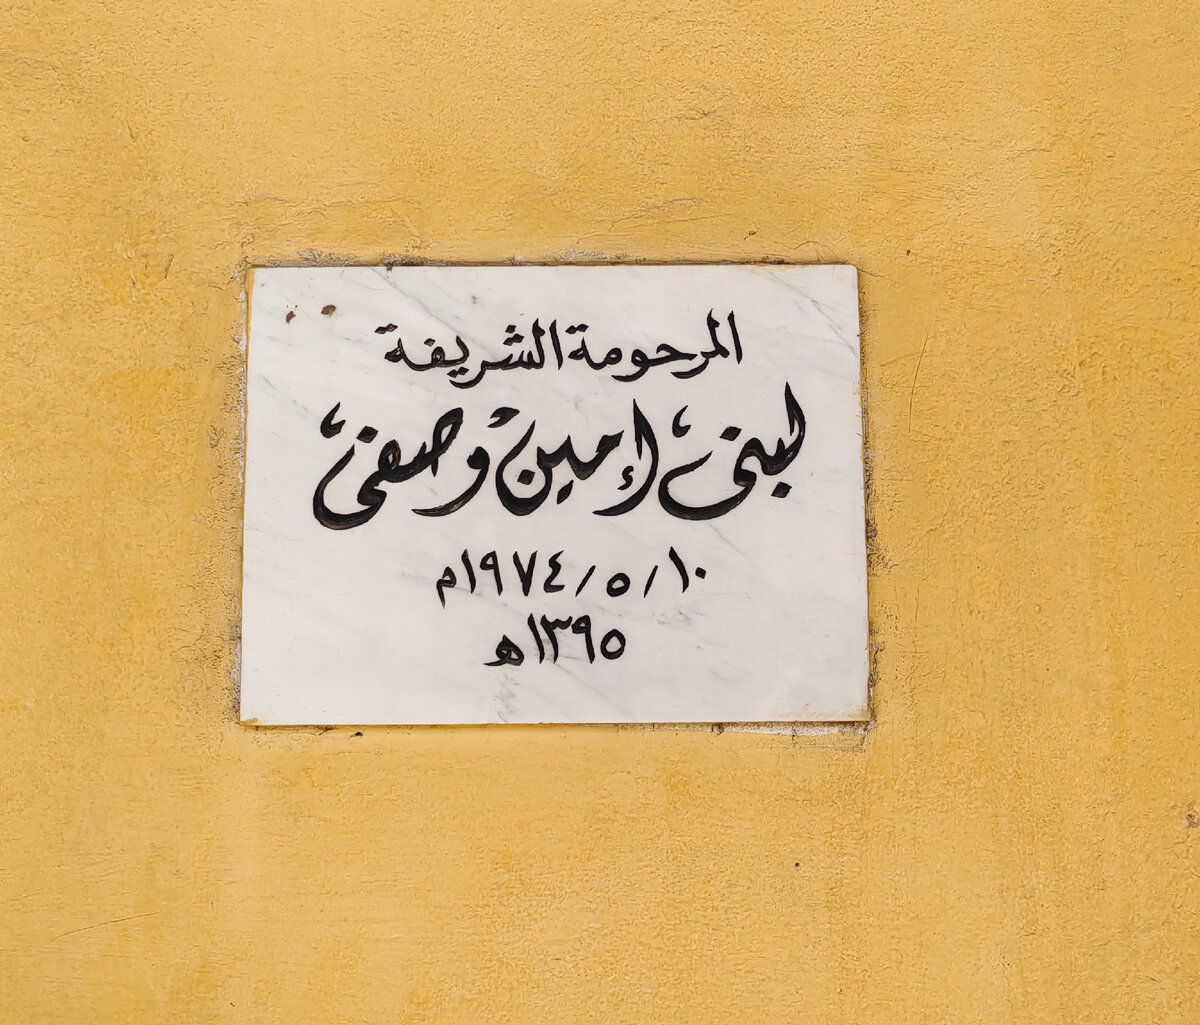 المرحومة الشريفة
لبنى إمين وصفى
١٠/٥/١٩٧٤م
١٣٩٥ه